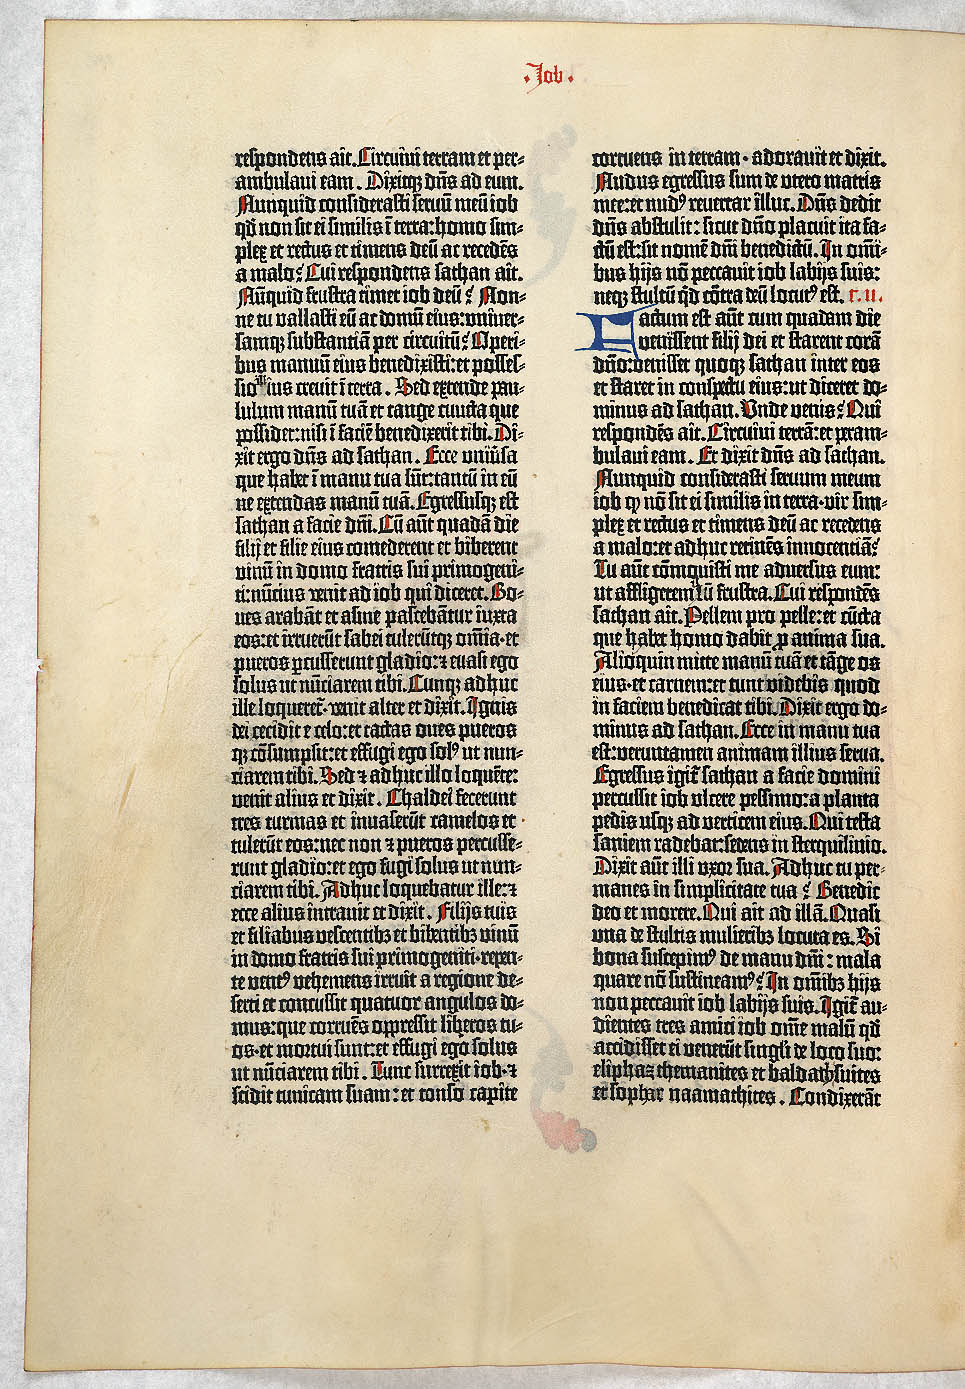 ·Job·
respondens ait. Circuivi terram et per-
ambulavi eam. Dixitqꝫ dn̄s ad eum.
Nunquid considerasti servū meū iob
qd̄ non sit ei similis ī terra: homo sim-
plex et rectus et timens deū ac recedēs
a malo? Cui respondens sathan ait.
Nūquid frustra timet iob deū? Non-
ne tu vallasti eū ac domū eius: univer-
samqꝫ substantiā per circuitū? Operi-
bus manuū eius benedixisti: et posses-
sio illius crevit ī terra. Sed extende pau-
lulum manū tuā et tange cuncta que
possidet: nisi ī faciē benedixerit tibi. Di-
xit ergo dn̄s ad sathan. Ecce univ̄sa
que habet ī manu tua sūt: tantū in eū
ne extendas manū tuā. Egressusqꝫ est
sathan a facie dn̄i. Cū aūt quadā die
filij et filie eius comederent et biberent
vinū in domo fratris sui primogeni-
ti: nūcius venit ad iob qui diceret. Bo-
ves arabāt et asine pascebātur iuxta
eos: et irruerūt sabei tuleruntqꝫ om̄ia· et
pueros ꝑcusserunt gladio: ⁊ evasi ego
solus ut nūciarem tibi. Cunqꝫ adhuc
ille loqueret᷑· venit alter et dixit. Ignis
dei cecidit e celo: et tactas oves pueros
qꝫ cōsumpsit: et effugi ego solꝰ ut nun-
ciarem tibi. Sed ⁊ adhuc illo loquēte:
venit alius et dixit. Chaldei fecerunt
tres turmas et invaserūt camelos et
tulerūt eos: nec non ⁊ pueros percusse-
runt gladio: et ego fugi solus ut nun-
ciarem tibi. Adhuc loquebatur ille: ⁊
ecce alius intravit et dixit. Filijs tuis
et filiabus vescentibꝫ et bibentibꝫ vinū
in domo fratris sui primogeniti· repen-
te ventꝰ vehemens irruit a regione de-
serti et concussit quatuor angulos do-
mus: que corruēs oppressit liberos tu-
os· et mortui sunt: et effugi ego solus
ut nūciarem tibi. Tunc surrexit iob· ⁊
scidit tunicam suam: et tonso capite
corruens in terram· adoravit et dixit.
Nudus egressus sum de utero matris
mee: et nudꝰ revertar illuc. Dn̄s dedit
dn̄s abstulit: sicut dn̄o placuit ita fa-
ctū est: sit nomē dn̄i benedictū. In om̄i-
bus hijs nō peccavit iob labijs suis:
neqꝫ stultū qd̄ cōtra deū locutꝰ est. c. ii.
Factum est aūt cum quadam die
venissent filij dei et starent corā
dn̄o: venisset quoqꝫ sathan inter eos
et staret in conspectu eius: ut diceret do-
minus ad sathan. Unde venis? Qui
respondēs ait. Circuivi terrā: et ꝑam-
bulavi eam. Et dixit dn̄s ad sathan.
Nunquid considerasti servum meum
iob ꝙ nō sit ei similis in terra· vir sim-
plex et rectus et timens deū ac recedens
a malo: et adhuc retinēs innocentiā?
Tu aūt cōmovisti me adversus eum:
ut affligerem illū frustra. Cui respondēs
sathan ait. Pellem pro pelle: et cūcta
que habet homo dabit ꝓ anima sua.
Alioquin mitte manū tuā et tāge os
eius· et carnem: et tunc videbis quod
in faciem benedicat tibi. Dixit ergo do-
minus ad sathan. Ecce in manu tua
est: veruntamen animam illius serva.
Egressus igit᷑ sathan a facie domini
percussit iob ulcere pessimo: a planta
pedis usqꝫ ad verticem eius. Qui testa
saniem radebat: sedens in sterquilinio.
Dixit aūt illi uxor sua. Adhuc tu per-
manes in simplicitate tua? Benedic
deo et morere. Qui ait ad illā. Quasi
una de stultis mulieribꝫ locuta es. Si
bona suscepimꝰ de manu dn̄i: mala
quare nō sustineamꝰ? In om̄ibꝫ hijs
non peccavit iob labijs suis. Igit᷑ au-
dientes tres amici iob om̄e malū qd̄
accidisset ei venerūt singli̾ de loco suo:
eliphaz themanites et baldath suites
et sophar naamathites. Condixerāt